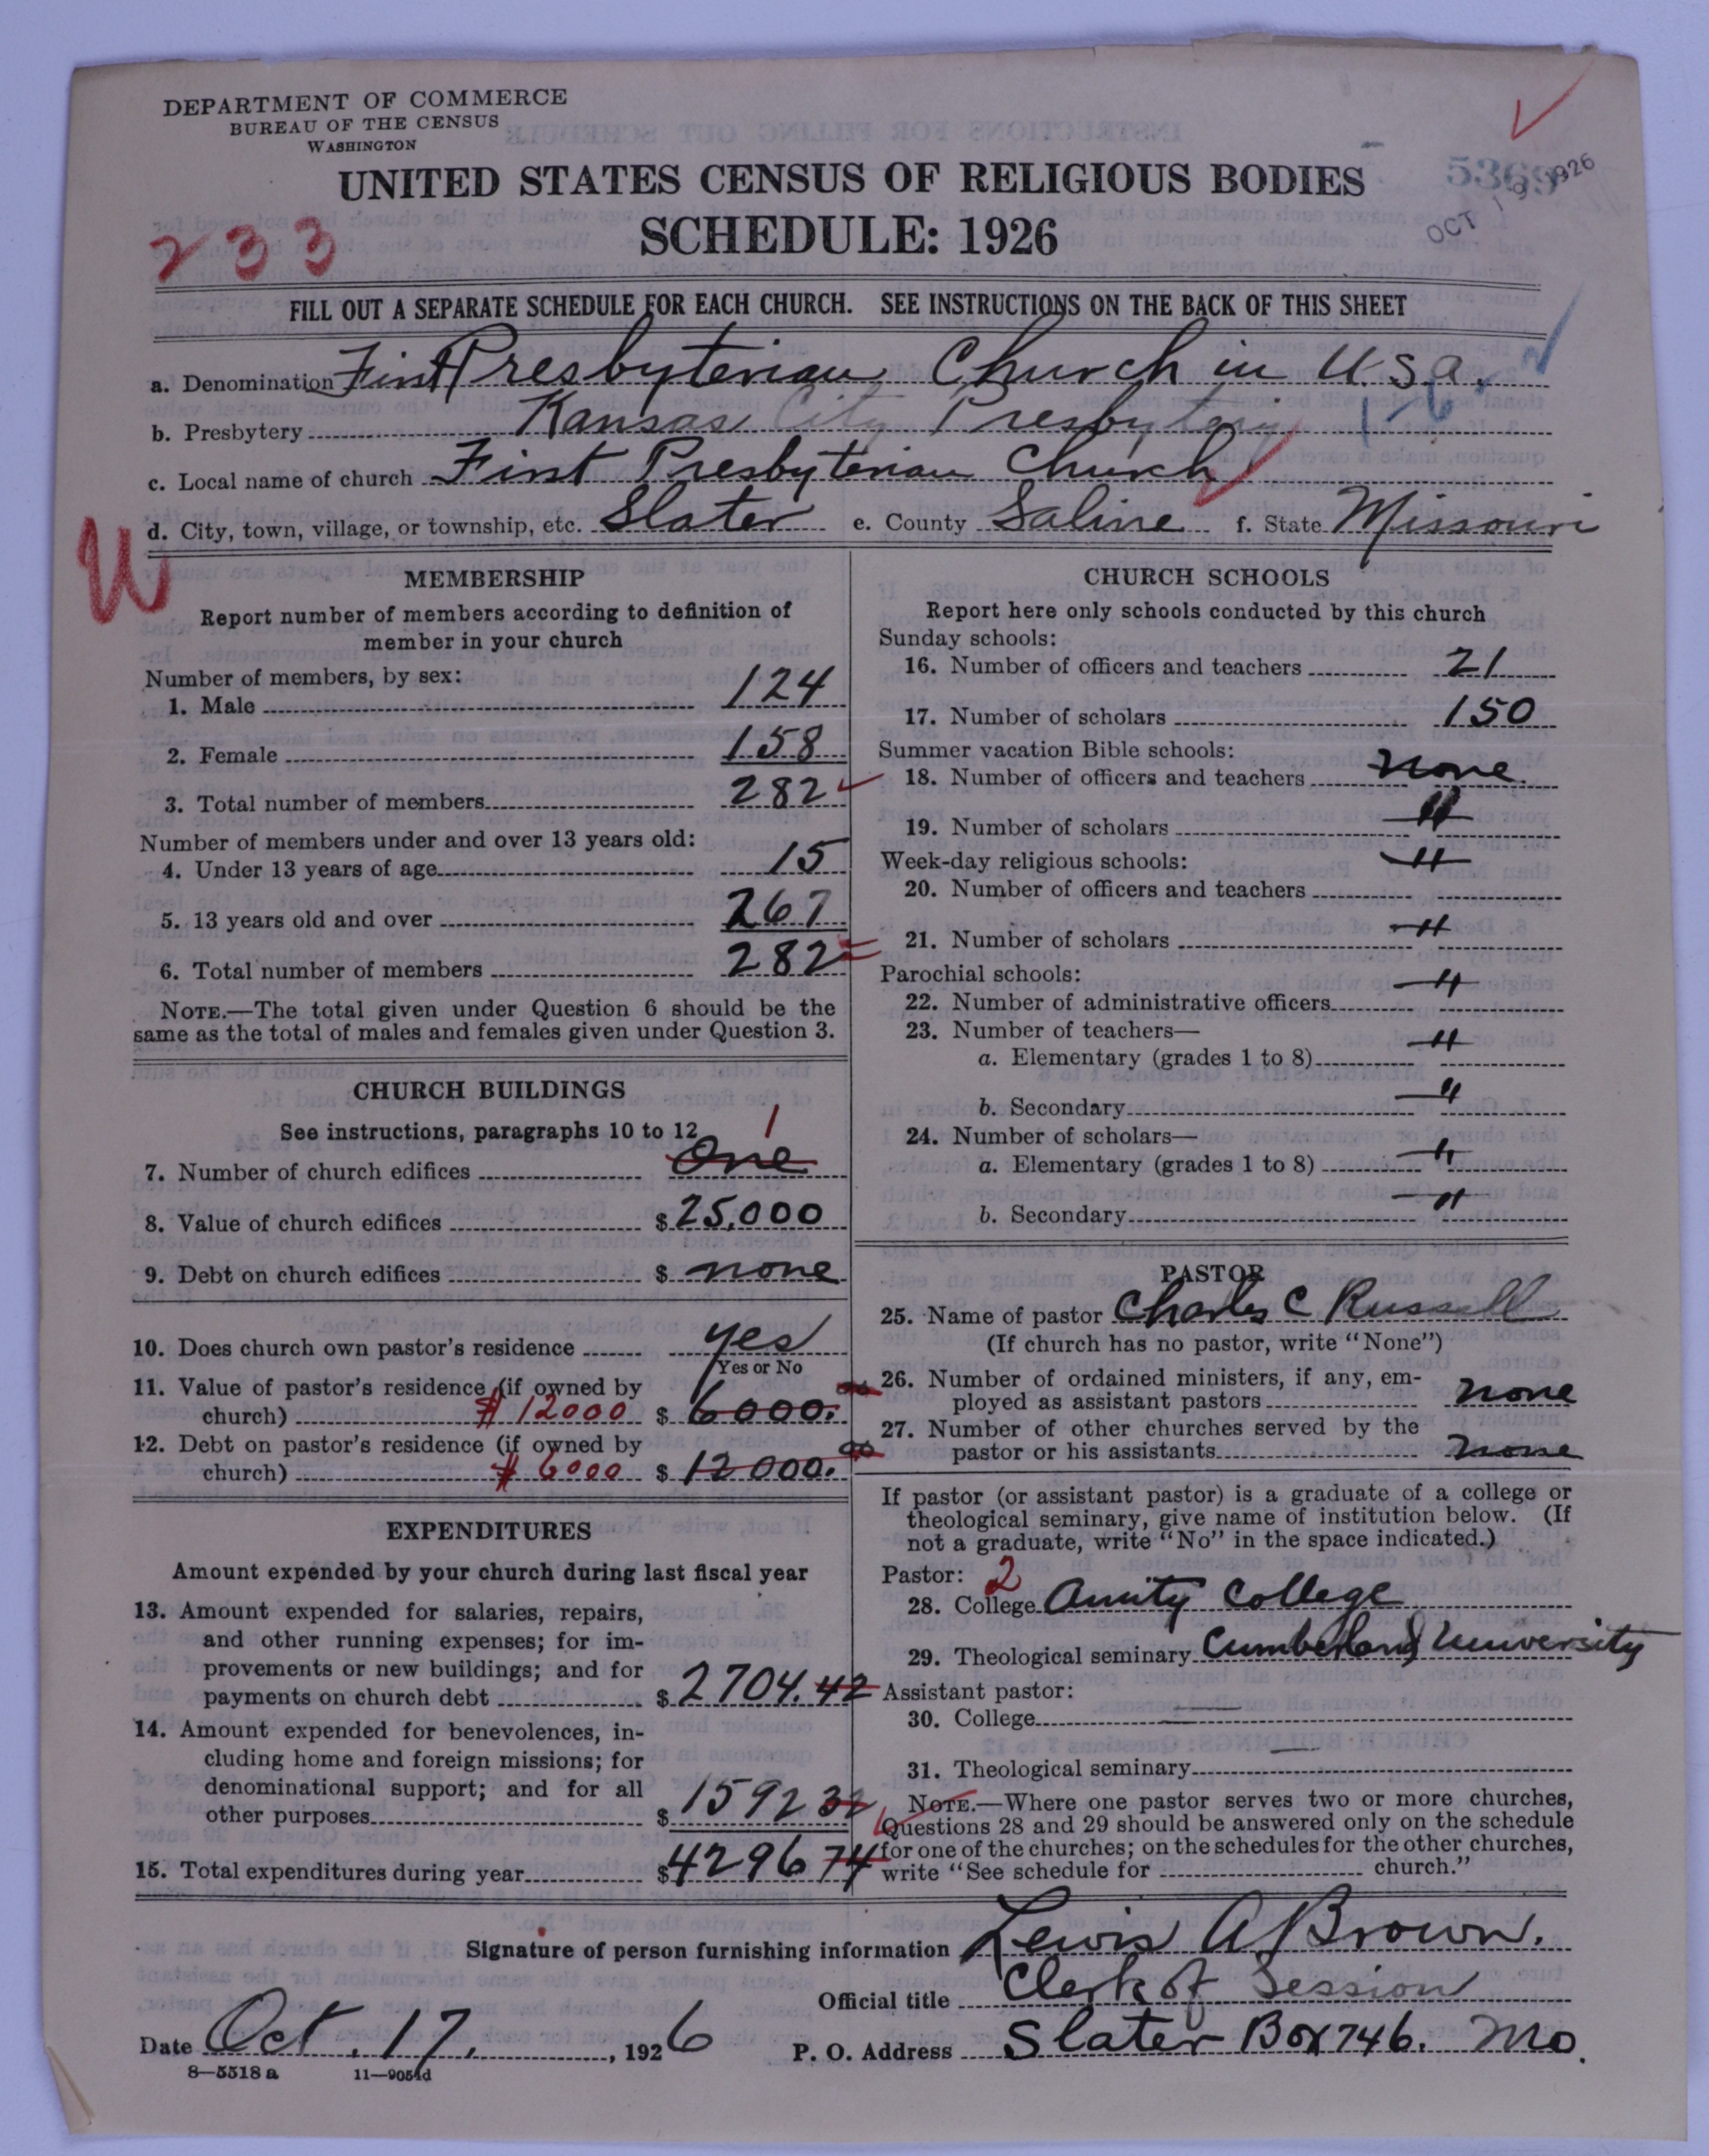 DEPARTMENT OF COMMERCE
BUREAU OF THE CENSUS
WASHINGTON
UNITED STATES CENSUS OF RELIGIOUS BODIES
SCHEDULE: 1926
5369
OCT 19 1926
233
FILL OUT A SEPARATE SCHEDULE FOR EACH CHURCH. SEE INSTRUCTIONS ON THE BACK OF THIS SHEET
a. Denomination First Presbyterian Church in U.S.A.
b. Presbytery Kansas City Presbytery 1-6
c. Local name of church First Presbyterian Church
d. City, town, village, or township, etc. Slater e. County Saline f. State Missouri
MEMBERSHIP
Report number of members according to definition of
member in your church
Number of members, by sex:
1. Male 124
2. Female 158
3. Total number of members 282
Number of members under and over 13 years old:
4. Under 13 years of age 15
5. 13 years old and over 267
6. Total number of members 282
NOTE.—The total given under Question 6 should be the
same as the total of males and females given under Question 3.
CHURCH BUILDINGS
See instructions, paragraphs 10 to 12
1
7. Number of church edifices One
8. Value of church edifices $ 25,000
9. Debt on church edifices $ none
10. Does church own pastor's residence yes
Yes or No
11. Value of pastor's residence (if owned by
church) $ 12000 $ 6000.00
12. Debt on pastor's residence (if owned by
church) $ 6000 $ 12000.00
EXPENDITURES
Amount expended by your church during last fiscal year
13. Amount expended for salaries, repairs,
and other running expenses; for im-
provements or new buildings; and for
payments on church debt $ 2704.42
14. Amount expended for benevolences, in-
cluding home and foreign missions; for
denominational support; and for all
other purposes $ 1592 32
15. Total expenditures during year $ 4296 74
CHURCH SCHOOLS
Report here only schools conducted by this church
Sunday schools:
16. Number of officers and teachers 21
17. Number of scholars 150
Summer vacation Bible schools:
18. Number of officers and teachers none
19. Number of scholars "
Week-day religious schools:
20. Number of officers and teachers "
21. Number of scholars "
Parochial schools:
22. Number of administrative officers "
23. Number of teachers—
a. Elementary (grades 1 to 8) "
b. Secondary "
24. Number of scholars—
a. Elementary (grades 1 to 8) "
b. Secondary "
PASTOR
25. Name of pastor Charles C Russell
(If church has no pastor, write "None")
26. Number of ordained ministers, if any, em-
ployed as assistant pastors none
27. Number of other churches served by the
pastor or his assistants none
If pastor (or assistant pastor) is a graduate of a college or
theological seminary, give name of institution below. (If
not a graduate, write "No" in the space indicated.)
Pastor: 2
28. College Amity College
29. Theological seminary Cumberland University
Assistant pastor:
30. College
31. Theological seminary
NOTE.—Where one pastor serves two or more churches,
Questions 28 and 29 should be answered only on the schedule
for one of the churches; on the schedules for the other churches,
write "See schedule for church."
Signature of person furnishing information Lewis A Brown.
Official title Clerk of Session
Date Oct. 17, 1926 P. O. Address Slater Box 746. Mo.
8—5518 a 11—9051d